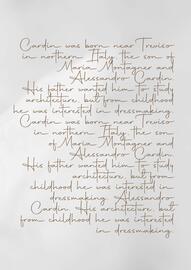 Cardin was born near Treviso
in northern Italy, the son of
Maria Montagner and
Alessandro Cardin.
His father wanted him to study
architecture, but from childhood
he was interested in dressmaking.
Cardin was born near Treviso
in northern Italy, the son
of Maria Montagner and
Alessandro Cardin.
His father wanted him to study
architecture, but from
childhood he was interested in
dressmaking. Alessandro
Cardin. His architecture, but
from childhood he was interested
in dressmaking.